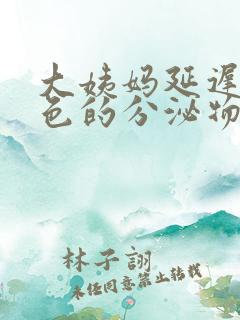 大姨妈延迟
色的分泌物
林子翊
未经同意禁止转载